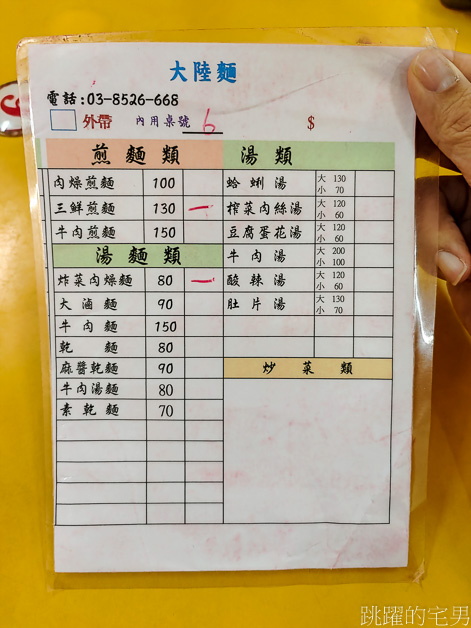 大陸麵
電話:03-8526-668
外帶 內用桌號 6 $
煎麵類
肉燥煎麵 100
三鮮煎麵 130 一
牛肉煎麵 150
湯麵類
炸菜肉燥麵 80 一
大滷麵 90
牛肉麵 150
乾麵 80
麻醬乾麵 90
牛肉湯麵 80
素乾麵 70
湯類
蛤蜊湯 大 130 小 70
榨菜肉絲湯 大 120 小 60
豆腐蛋花湯 大 120 小 60
牛肉湯 大 200 小 100
酸辣湯 大 120 小 60
肚片湯 大 130 小 70
炒菜類
跳躍的宅男